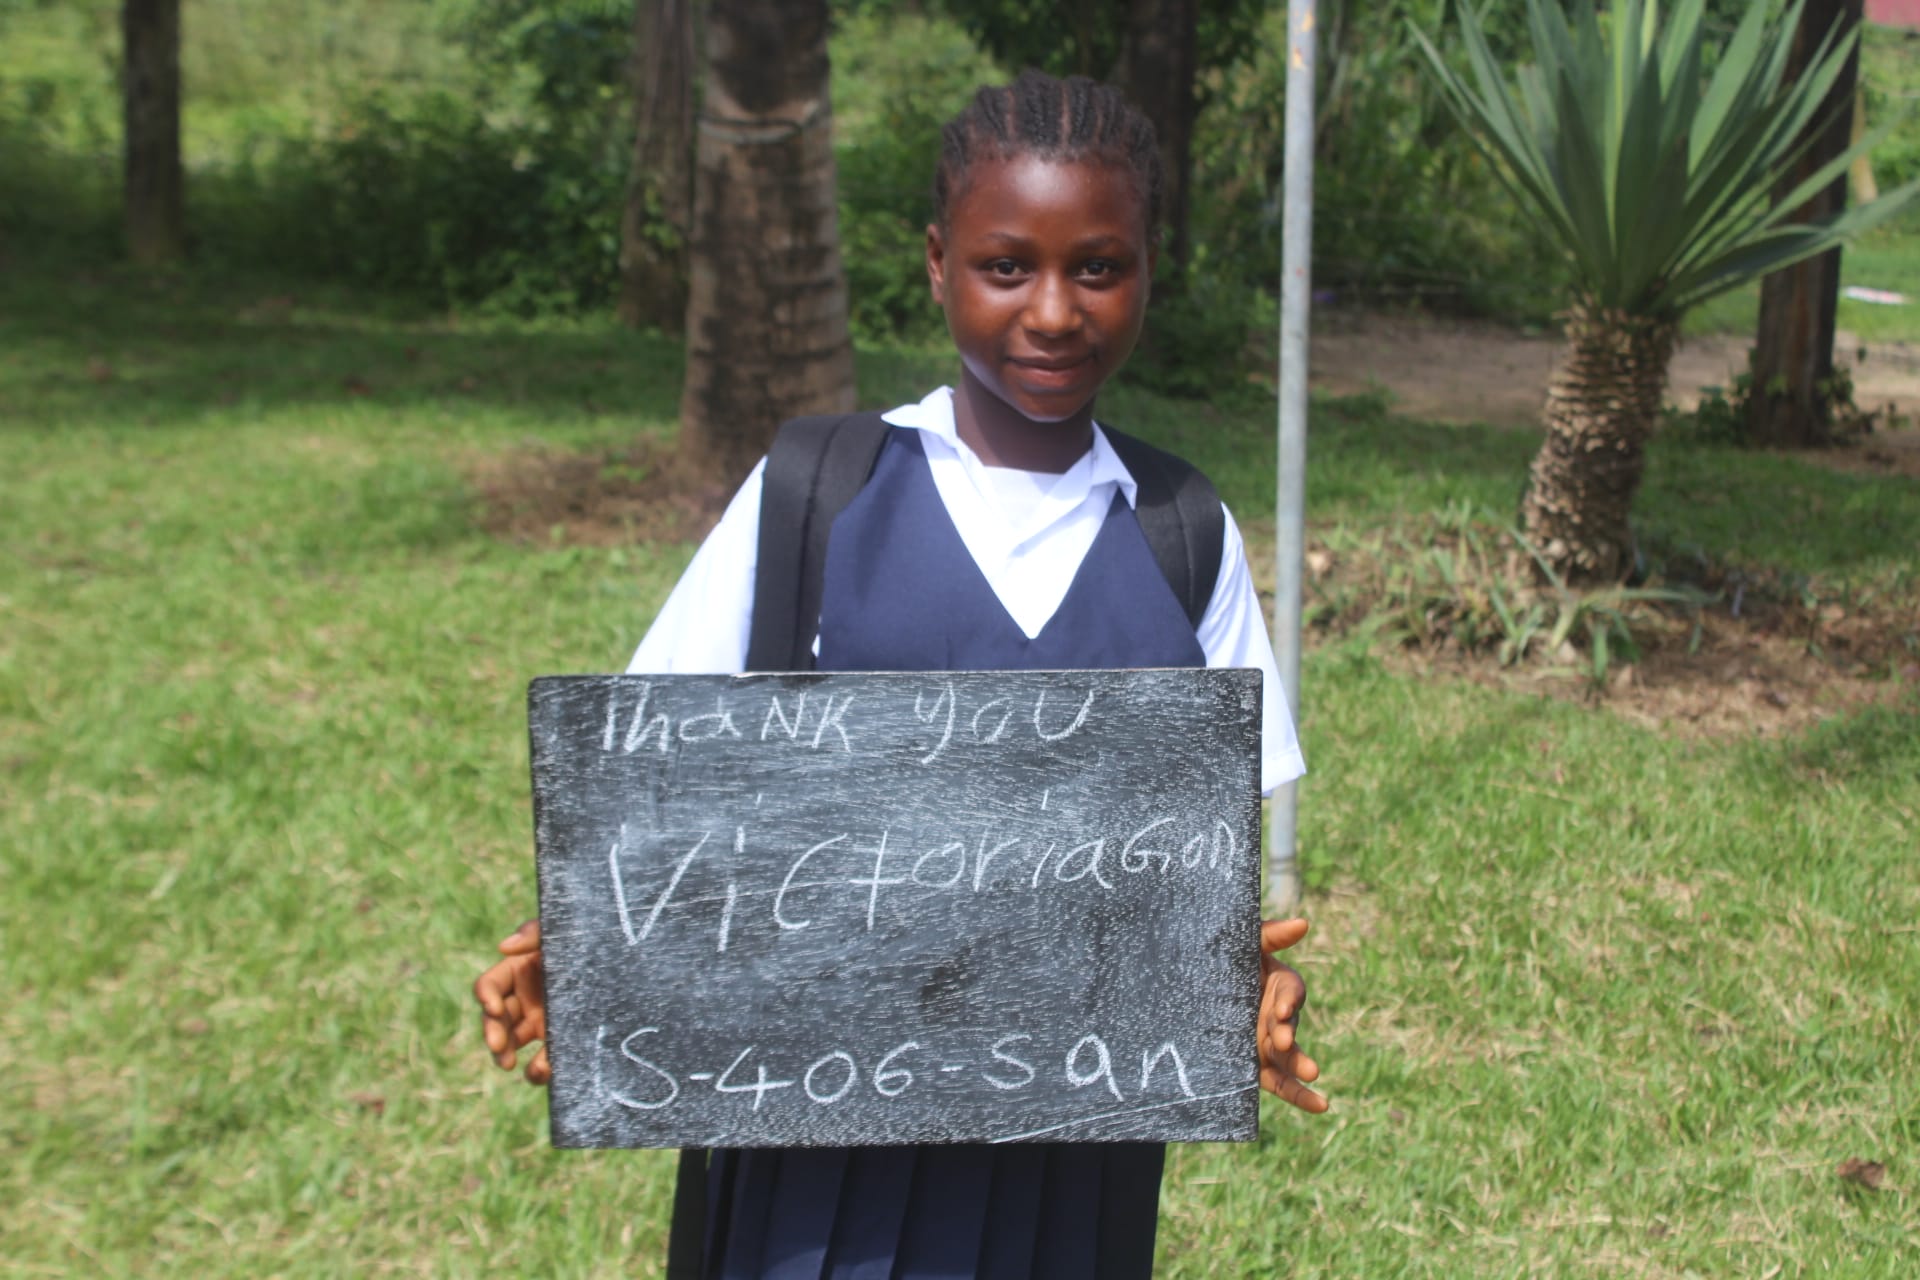 Thank you
Victoria Gion
IS-406-San